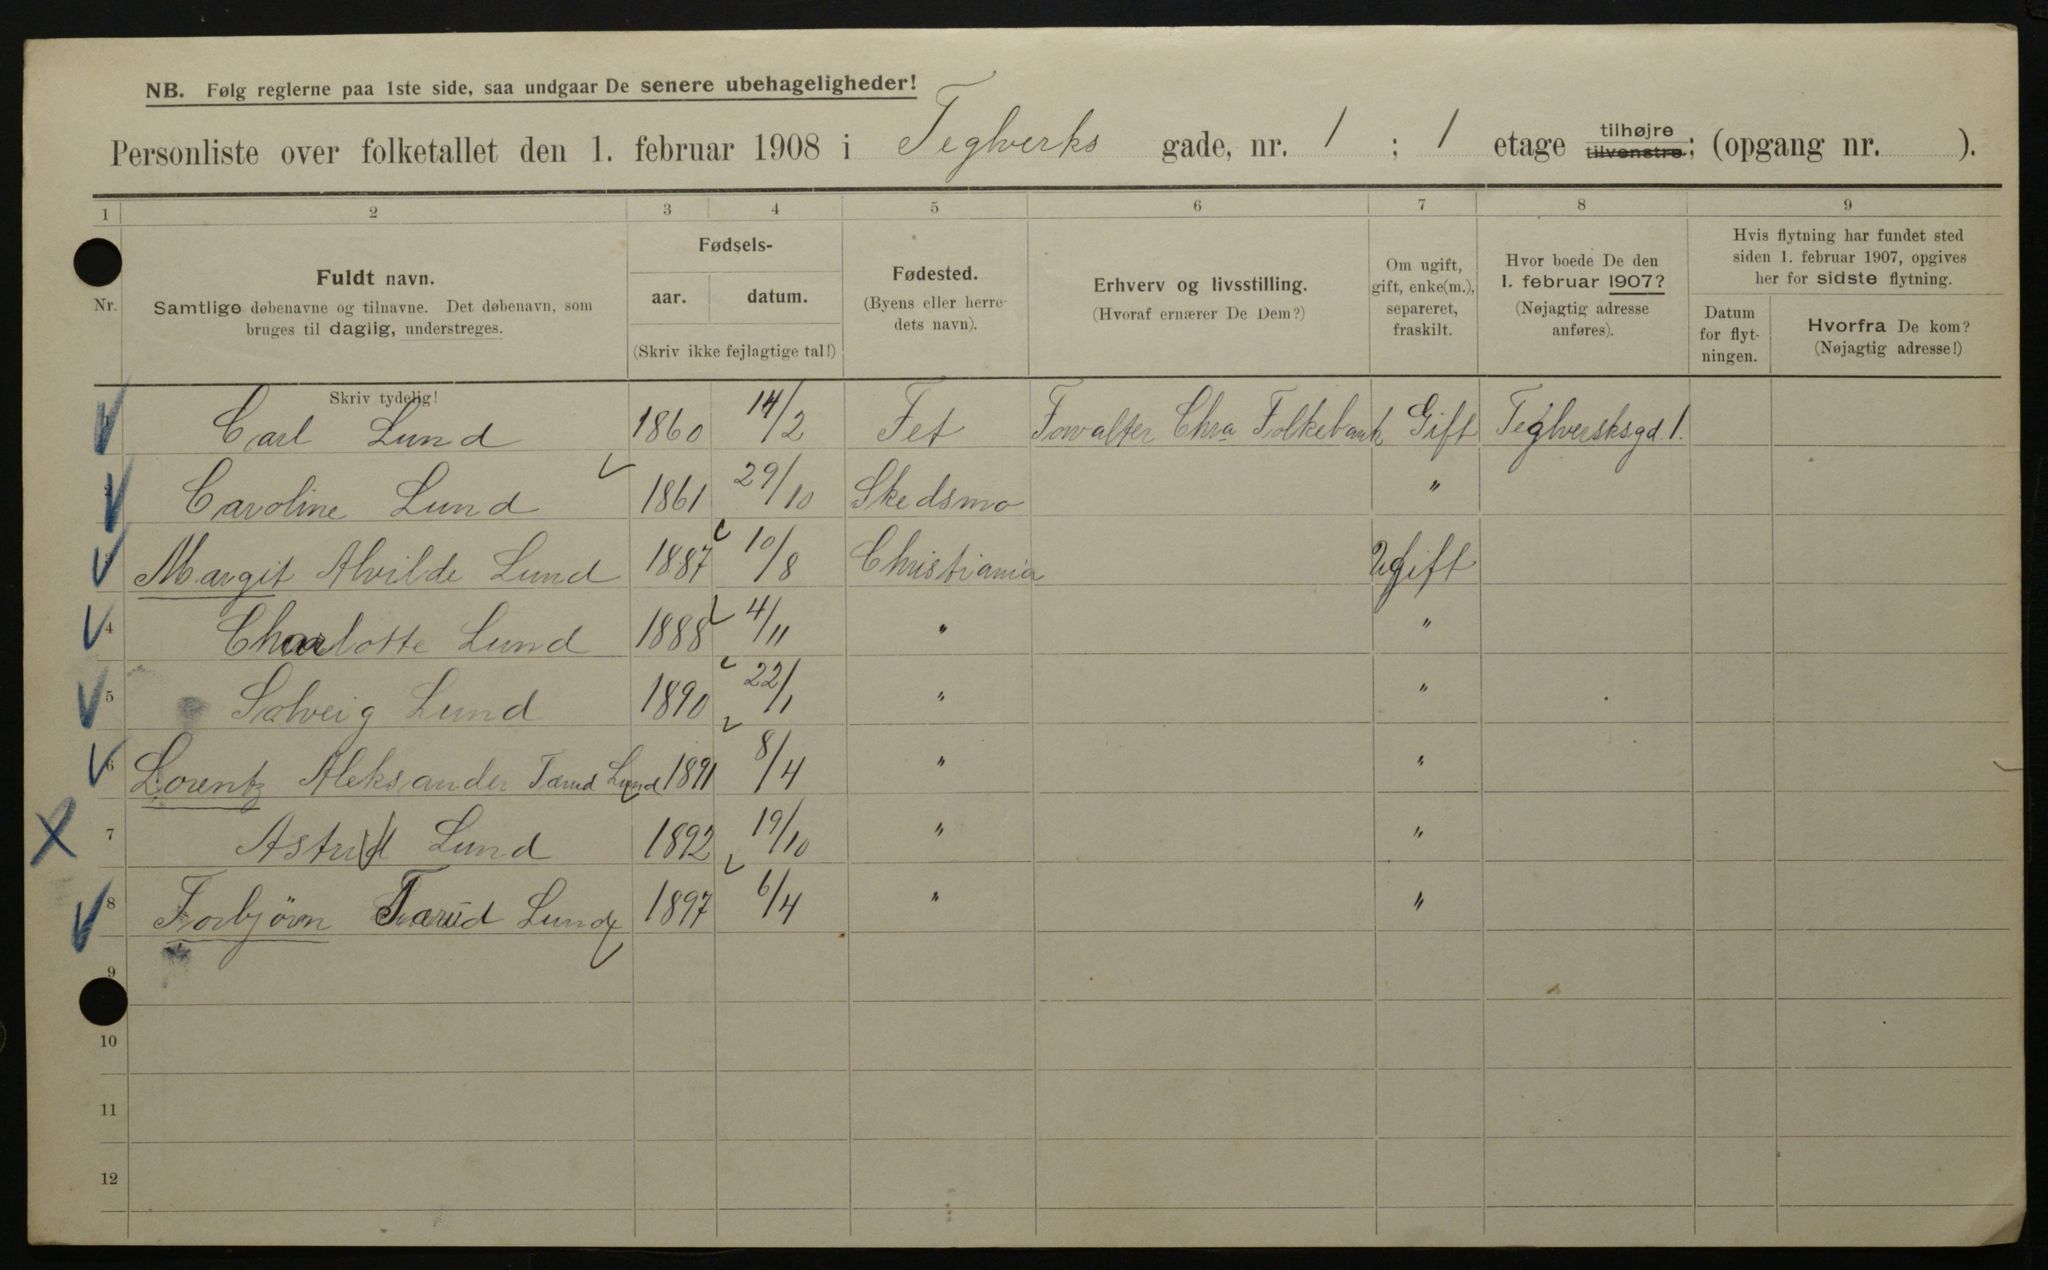 NB. Følg reglerne paa 1ste side, saa undgaar De senere ubehageligheder!
Personliste over folketallet den 1. februar 1908 i Teglverks gade, nr. 1 ; 1 etage tilhøjre tilvenstre; (opgang nr. ).
1 2 3 4 5 6 7 8 9
Nr.
Fuldt navn.
Samtlige døbenavne og tilnavne. Det døbenavn, som
bruges til daglig, understreges.
Skriv tydelig!
Fødsels-
aar. datum.
(Skriv ikke fejlagtige tal!)
Fødested.
(Byens eller herre-
dets navn).
Erhverv og livsstilling.
(Hvoraf ernærer De Dem?)
Om ugift,
gift, enke(m.),
separeret,
fraskilt.
Hvor boede De den
1. februar 1907?
(Nøjagtig adresse
anføres).
Hvis flytning har fundet sted
siden 1. februar 1907, opgives
her for sidste flytning.
Datum
for flyt-
ningen.
Hvorfra De kom?
(Nøjagtig adresse!)
1 Carl Lund 1860 14/2 Fet Forvalter Chra Folkebank Gift Teglversksgd 1.
2 Caroline Lund 1861 29/10 Skedsmo "
3 Margit Alvilde Lund 1887 10/8 Christiania Ugift
4 Charlotte Lund 1888 4/11 " "
5 Solveig Lund 1890 22/1 " "
6 Lorentz Aleksander Tærud Lund 1891 8/4 " "
7 Astrid Lund 1892 19/10 " "
8 Torbjörn Tærud Lund 1897 6/4 " "
9
10
11
12